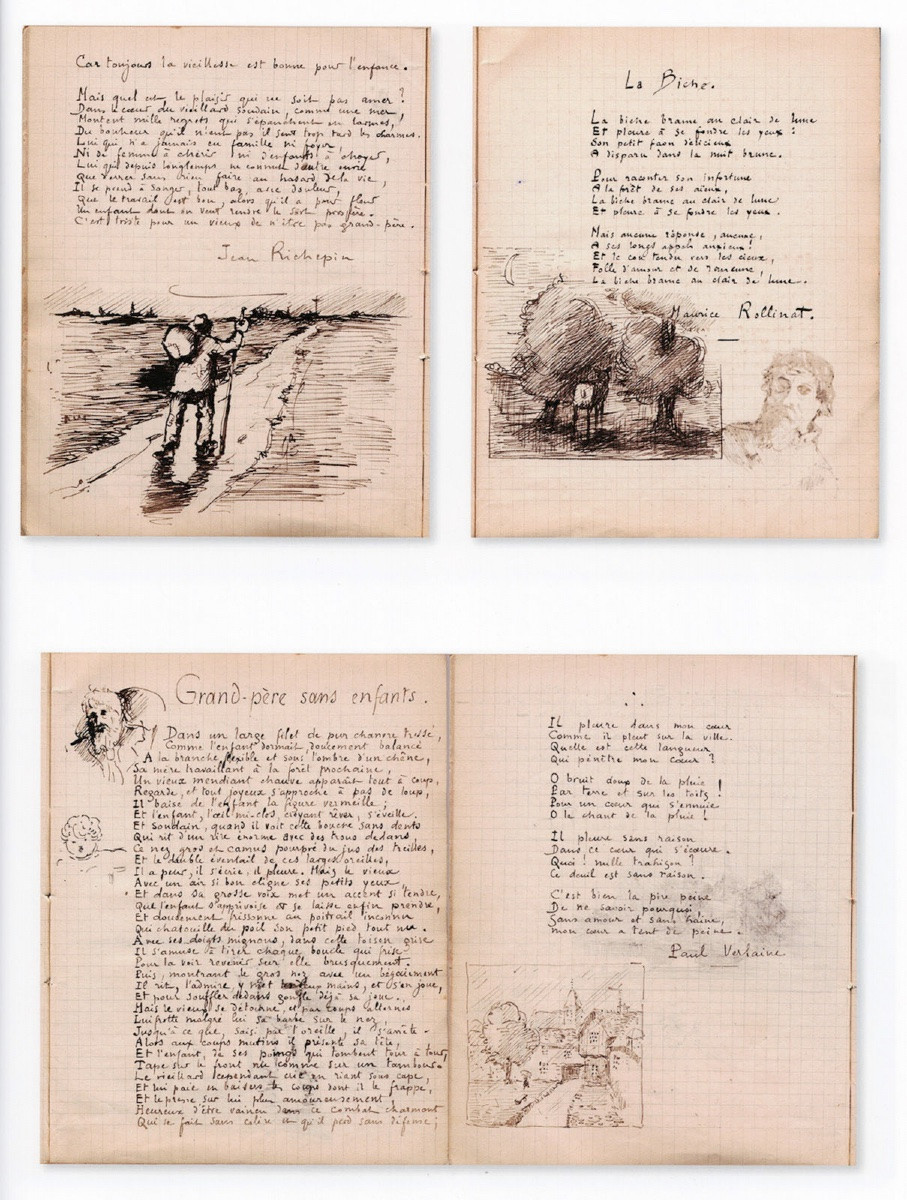 Car toujours la vieillesse est bonne pour l'enfance.
Mais quel est, le plaisir qui ne soit pas amer ?
Dans le cœur du vieillard soudain, comme une mer,
Montent mille regrets qui s'épanchent en larmes,
Du bonheur qu'il n'eut pas il sent trop tard les charmes.
Lui qui n'a jamais eu famille ni foyer,
Ni de femme à chérir, ni d'enfants à choyer,
Lui qui depuis longtemps ne connut d'autre envie
Que d'errer sans rien faire au hasard de la vie,
Il se prend à songer, tout bas, avec douleur,
Que le travail est bon, alors qu'il a pour fleur
Un enfant dont on veut rendre le sort prospère.
C'est triste pour un vieux de n'être pas grand-père.
Jean Richepin
La Biche.
La biche brame au clair de lune
Et pleure à se fondre les yeux :
Son petit faon délicieux
A disparu dans la nuit brune.
Pour raconter son infortune
A la forêt de ses aïeux,
La biche brame au clair de lune
Et pleure à se fondre les yeux.
Mais aucune réponse, aucune,
A ses longs appels anxieux !
Et le cou tendu vers les cieux,
Folle d'amour et de rancune,
La biche brame au clair de lune.
Maurice Rollinat.
Grand-père sans enfants.
Dans un large filet de pur chanvre tressé,
Comme l'enfant dormait, doucement balancé
A la branche flexible et sous l'ombre d'un chêne,
Sa mère travaillant à la forêt prochaine,
Un vieux mendiant chauve apparaît tout à coup,
Regarde, et tout joyeux s'approche à pas de loup,
Il baise de l'enfant la figure vermeille ;
Et l'enfant, l'œil mi-clos, croyant rêver, s'éveille.
Et soudain, quand il voit cette bouche sans dents
Qui rit d'un rire énorme avec des trous dedans
Ce nez gros et camus pourpré du jus des treilles,
Et le double éventail de ces larges oreilles,
Il a peur, il s'écrie, il pleure. Mais le vieux
Avec un air si bon cligne ses petits yeux,
Et dans sa grosse voix met un accent si tendre,
Que l'enfant s'apprivoise et se laisse enfin prendre,
Et doucement frissonne au poitrail inconnu
Qui chatouille du poil son petit pied tout nu.
Avec ses doigts mignons, dans cette toison grise
Il s'amuse à tirer chaque boucle qui frise
Pour la voir revenir sur elle brusquement.
Puis, montrant le gros nez avec un bégaiement
Il rit, l'admire, y met mains, et s'en joue,
Et pour souffler dedans gonfle déjà sa joue.
Mais le vieux se détourne, et par coups alternés
Lui frotte malgré lui sa barbe sur le nez,
Jusqu'à ce que, saisi par l'oreille, il s'arrête.
Alors aux coups mutins il présente sa tête,
Et l'enfant, de ses poings qui tombent tour à tour,
Tape sur le front nu comme sur un tambour.
Le vieillard cependant crie en riant sous cape,
Et lui paie en baisers les coups dont il le frappe,
Et le presse sur lui plus amoureusement,
Heureux d'être vaincu dans ce combat charmant
Qui se fait sans colère et qu'il perd sans défense ;
Il pleure dans mon cœur
Comme il pleut sur la ville.
Quelle est cette langueur
Qui pénètre mon cœur ?
O bruit doux de la pluie !
Par terre et sur les toits !
Pour un cœur qui s'ennuie
O le chant de la pluie !
Il pleure sans raison
Dans ce cœur qui s'écœure.
Quoi ! nulle trahison ?
Ce deuil est sans raison.
C'est bien la pire peine
De ne savoir pourquoi,
Sans amour et sans haine,
mon cœur a tant de peine.
Paul Verlaine